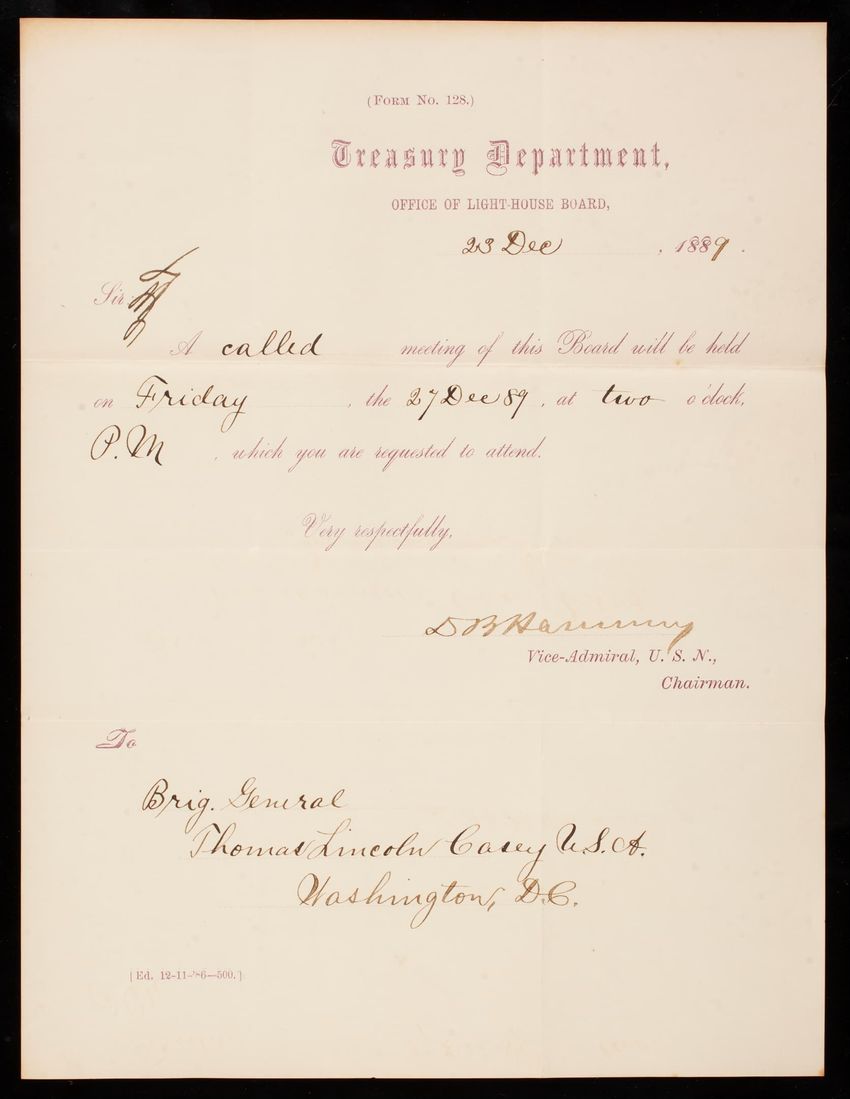 (FORM NO. 128.)
Treasury Department,
OFFICE OF LIGHT-HOUSE BOARD,
23 Dec , 1889.
Sir:
A called meeting of this Board will be held
on Friday , the 27 Dec 89 , at two o'clock,
P.M , which you are requested to attend.
Very respectfully,
D B Harmony
Vice-Admiral, U. S. N.,
Chairman.
To
Brig. General
Thomas Lincoln Casey U.S.A.
Washington, D.C.
[Ed. 12-11-'86—500.]